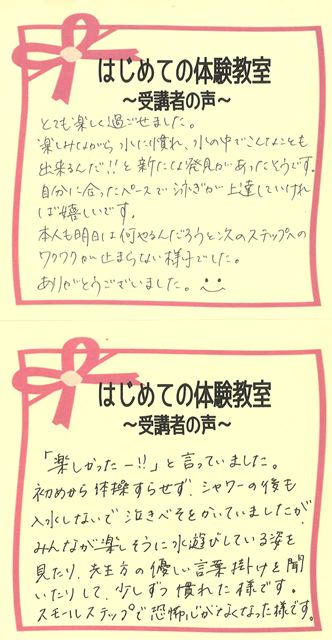 はじめての体験教室
～受講者の声～
とても楽しく過ごせました。
楽しみながら、水に慣れ、水の中でこんなことも
出来るんだ!!と新たな発見があったそうです。
自分に合ったペースで泳ぎが上達していけれ
ば嬉しいです。
本人も明日は何やるんだろうと次のステップへの
ワクワクが止まらない様子でした。
ありがとうございました。
はじめての体験教室
～受講者の声～
「楽しかったー!!」と言っていました。
初めから体操すらせず、シャワーの後も
入水しないで泣きべそをかいていましたが、
みんなが楽しそうに水遊びしている姿を
見たり、先生方の優しい言葉掛けを聞
いたりして、少しずつ慣れた様です。
スモールステップで恐怖心がなくなった様です。